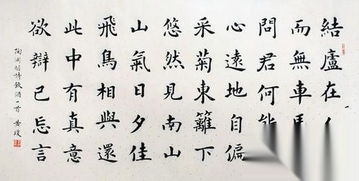 結廬在
而無車馬
問君何
心遠地自偏
采菊東籬下
悠然見南山
山氣日夕佳
飛鳥相與還
此中有真意
欲辯已忘言
陶淵明詩飲酒一首